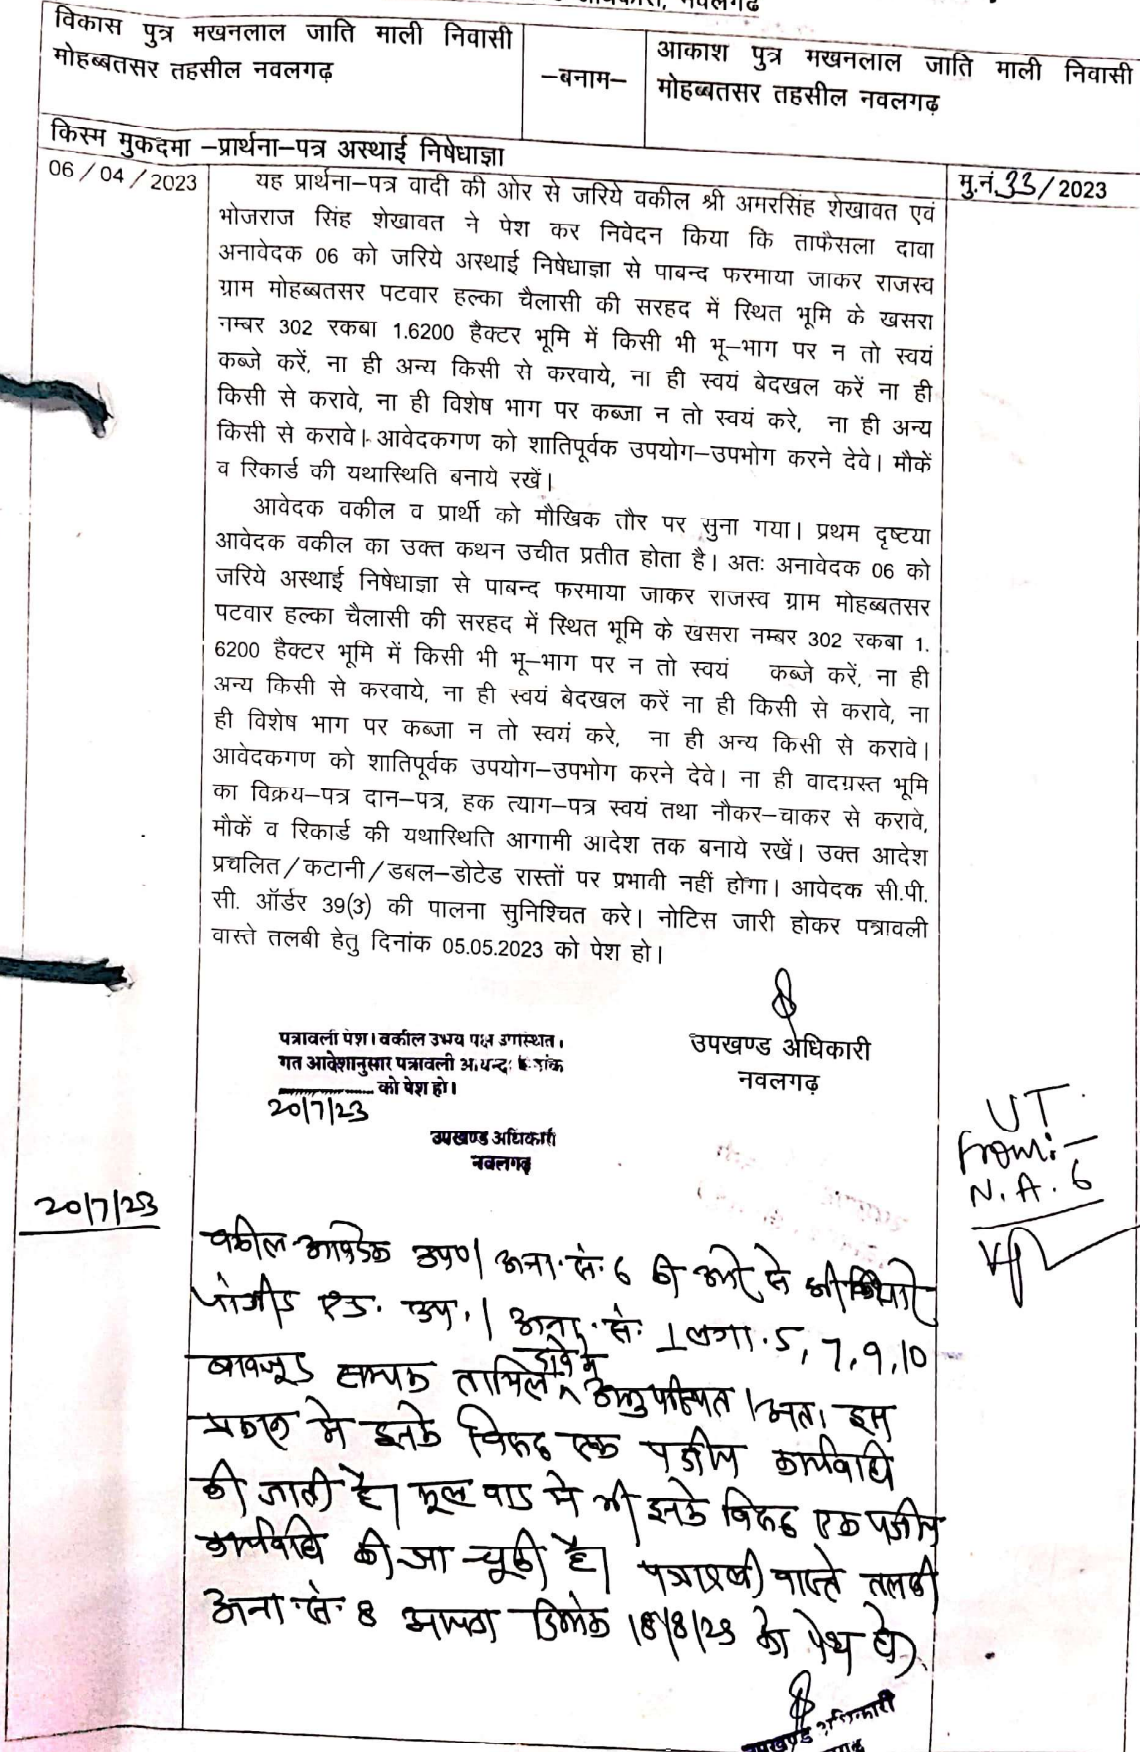 नवलगढ़
विकास पुत्र मखनलाल जाति माली निवासी
मोहब्बतसर तहसील नवलगढ़
–बनाम–
आकाश पुत्र मखनलाल जाति माली निवासी
मोहब्बतसर तहसील नवलगढ़
किस्म मुकदमा –प्रार्थना–पत्र अस्थाई निषेधाज्ञा
06/04/2023
मु.नं.33/2023
यह प्रार्थना–पत्र वादी की ओर से जरिये वकील श्री अमरसिंह शेखावत एवं
भोजराज सिंह शेखावत ने पेश कर निवेदन किया कि ताफैसला दावा
अनावेदक 06 को जरिये अस्थाई निषेधाज्ञा से पाबन्द फरमाया जाकर राजस्व
ग्राम मोहब्बतसर पटवार हल्का चैलासी की सरहद में स्थित भूमि के खसरा
नम्बर 302 रकबा 1.6200 हैक्टर भूमि में किसी भी भू–भाग पर न तो स्वयं
कब्जे करें, ना ही अन्य किसी से करवाये, ना ही स्वयं बेदखल करें ना ही
किसी से करावे, ना ही विशेष भाग पर कब्जा न तो स्वयं करे, ना ही अन्य
किसी से करावे। आवेदकगण को शातिपूर्वक उपयोग–उपभोग करने देवे। मौकें
व रिकार्ड की यथास्थिति बनाये रखें।
आवेदक वकील व प्रार्थी को मौखिक तौर पर सुना गया। प्रथम दृष्टया
आवेदक वकील का उक्त कथन उचीत प्रतीत होता है। अतः अनावेदक 06 को
जरिये अस्थाई निषेधाज्ञा से पाबन्द फरमाया जाकर राजस्व ग्राम मोहब्बतसर
पटवार हल्का चैलासी की सरहद में स्थित भूमि के खसरा नम्बर 302 रकबा 1.
6200 हैक्टर भूमि में किसी भी भू–भाग पर न तो स्वयं कब्जे करें, ना ही
अन्य किसी से करवाये, ना ही स्वयं बेदखल करें ना ही किसी से करावे, ना
ही विशेष भाग पर कब्जा न तो स्वयं करे, ना ही अन्य किसी से करावे।
आवेदकगण को शातिपूर्वक उपयोग–उपभोग करने देवे। ना ही वादग्रस्त भूमि
का विक्रय–पत्र दान–पत्र, हक त्याग–पत्र स्वयं तथा नौकर–चाकर से करावे,
मौकें व रिकार्ड की यथास्थिति आगामी आदेश तक बनाये रखें। उक्त आदेश
प्रचलित/कटानी/डबल–डोटेड रास्तों पर प्रभावी नहीं होगा। आवेदक सी.पी.
सी. ऑर्डर 39(3) की पालना सुनिश्चित करे। नोटिस जारी होकर पत्रावली
वास्ते तलबी हेतु दिनांक 05.05.2023 को पेश हो।
उपखण्ड अधिकारी
नवलगढ़
पत्रावली पेश। वकील उभय पक्ष उपस्थित।
गत आदेशानुसार पत्रावली
को पेश हो।
20/7/23
उपखण्ड अधिकारी
नवलगढ़
UT
From:-
N.A. 6
20/7/23
वकील आवेदक उप०। अना. सं. 6 की ओर से श्री
एड. उप.। अना. सं. 1 लगा. 5, 7, 9, 10
बावजूद सम्यक तामिल अनुपस्थित। अतः इस
प्रकरण में इनके विरुद्ध एक पक्षीय कार्यवाही
की जाती है। मूल वाद में भी इनके विरुद्ध एक पक्षीय
कार्यवाही की जा चूकी है। पत्रावली वास्ते तलबी
अना. सं. 8 दिनांक 18/8/23 को पेश हो।
उपखण्ड अधिकारी